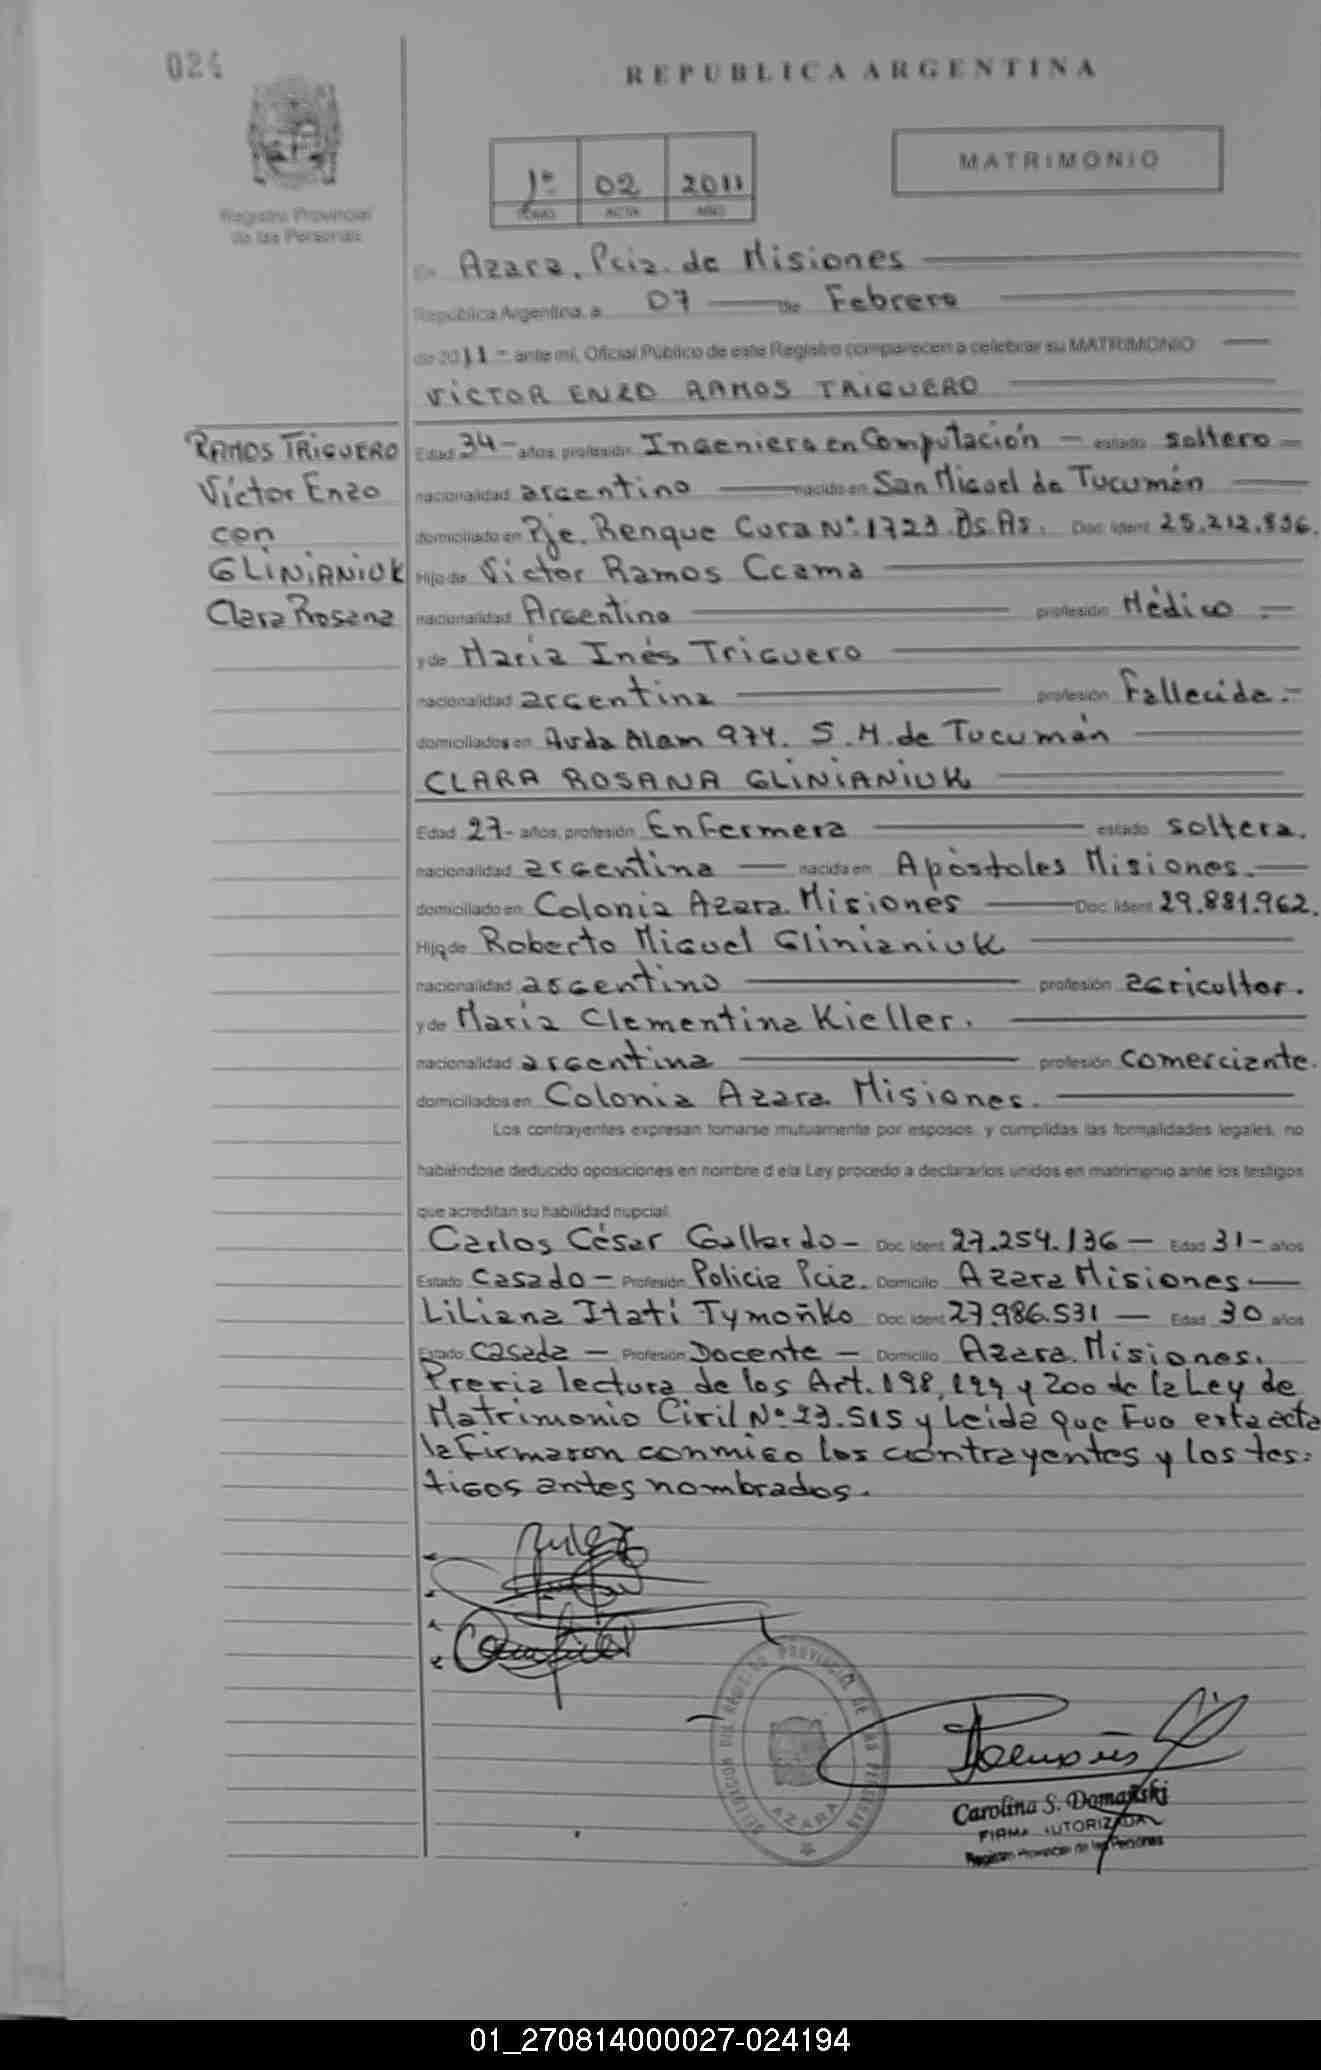 024
REPUBLICA ARGENTINA
MATRIMONIO
1º 02 2011
TOMO ACTA AÑO
Registro Provincial
de las Personas
En Azara, Pcia. de Misiones
República Argentina, a 07 de Febrero
de 2011 - ante mí, Oficial Público de este Registro comparecen a celebrar su MATRIMONIO
VICTOR ENZO RAMOS TRIGUERO
RAMOS TRIGUERO
Víctor Enzo
con
GLINIANIUK
Clara Rosana
Edad 34 - años, profesión Ingeniero en Computación - estado soltero -
nacionalidad argentino nacido en San Miguel de Tucumán
domiciliado en Pje. Renque Cura Nº 1723. Bs. As. Doc. Ident. 25.212.836.
Hijo de Victor Ramos Ccama
nacionalidad Argentino profesión Médico -
y de María Inés Triguero
nacionalidad argentina profesión Fallecida.-
domiciliados en Avda Alem 974. S. M. de Tucumán
CLARA ROSANA GLINIANIUK
Edad 27- años, profesión Enfermera estado soltera.
nacionalidad argentina nacida en Apóstoles Misiones.
domiciliado en Colonia Azara. Misiones Doc. Ident. 29.881.962.
Hija de Roberto Miguel Glinianiuk
nacionalidad argentino profesión agricultor.
y de María Clementina Kieller.
nacionalidad argentina profesión comerciante.
domiciliados en Colonia Azara Misiones.
Los contrayentes expresan tomarse mutuamente por esposos, y cumplidas las formalidades legales, no
habiéndose deducido oposiciones en nombre d ela Ley procedo a declararlos unidos en matrimonio ante los testigos
que acreditan su habilidad nupcial.
Carlos César Gallardo - Doc. Ident. 27.254.136 - Edad 31- años
Estado Casado - Profesión Policia Pcia. Domicilio Azara Misiones
Liliana Itatí Tymoñko Doc. Ident. 27.986.531 - Edad 30 años
Estado Casada - Profesión Docente - Domicilio Azara. Misiones.
Previa lectura de los Art. 198, 199 y 200 de la Ley de
Matrimonio Civil Nº 23.515 y Leida que Fue esta acta
la Firmaron conmigo los contrayentes y los tes=
tigos antes nombrados.
DELEGACION DEL REGISTRO PROVINCIAL DE LAS PERSONAS
AZARA
Carolina S. Domañski
FIRMA AUTORIZADA
Registro Provincial de las Personas
01_270814000027-024194